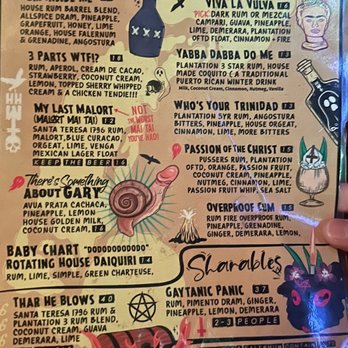 HOUSE RUM BARREL BLEND,
ALLSPICE DRAM, PINEAPPLE,
GRAPEFRUIT, HONEY, LIME
ORANGE, HOUSE FALERNUM
& GRENADINE, ANGOSTURA
3 PARTS WTF!? 18
RUM, APEROL, CREAM DE CACAO,
STRAWBERRY, COCONUT CREAM,
LEMON, TOPPED SHERRY WHIPPED
CREAM AND A CHERRY DUDED!!!
MY LAST MALORT
(MALORT MAI TAI) 13
SANTA TERESA 1796 RUM,
MALORT, BLUE CURACAO,
ORGEAT, LIME, VENGA
MEXICAN LAGER FLOAT
KEEP THE BEER 16
NOT
THE WORST
MAI TAI
YOU'VE HAD!
There's Something
ABOUT GASTY
AVUA PRATA CACHACA,
PINEAPPLE, LEMON
HOUSE GOLDEN MILK,
COCONUT CREAM. 16
BABY CHART "DODODODODODO"
ROTATING HOUSE DAIQUIRI 14
RUM, LIME, SIMPLE, GREEN CHARTEUSE,
THAR HE BLOWS 40
SANTA TERESA 1796 RUM &
PLANTATION 3 RUM BLEND,
COCONUT CREAM, GUAVA
DEMERARA, LIME
VIVA LA VULVA 14
"PICK" DARK RUM OR MEZCAL
CAMPARI, GUAVA, PINEAPPLE,
LIME, DEMERARA, PLANTATION
OFTD FLOAT, CINNAMON + FIRE
YABBA DABBA DO ME 13
PLANTATION 3 STAR RUM, HOUSE
MADE COQUITO ( A TRADITIONAL
PUERTO RICAN WINTER DRINK
Milk, Coconut Cream, Cinnamon, Nutmeg, Vanilla
WHO'S YOUR TRINIDAD 13
PLANTATION 5YR RUM, ANGOSTURA
BITTERS, PINEAPPLE, HOUSE ORGEAT,
CINNAMON, LIME, MORE BITTERS
PASSION OF THE CHRIST 15
PUSSERS RUM, PLANTATION
OFTD, ORANGE, PASSION FRUIT,
COCONUT CREAM, PINEAPPLE,
NUTMEG, CINNAMON, LIME,
PASSION FRUIT WHIP, SEA SALT
OVERPROOF CUM 15
RUM FIRE OVERPROOF RUM,
PINEAPPLE, GRENADINE,
GINGER, DEMERARA, LEMON,
Sharables
GAYTANIC PANIC 37
RUM, PIMENTO DRAM, GINGER,
PINEAPPLE, LEMON, DEMERARA
2-3 PEOPLE